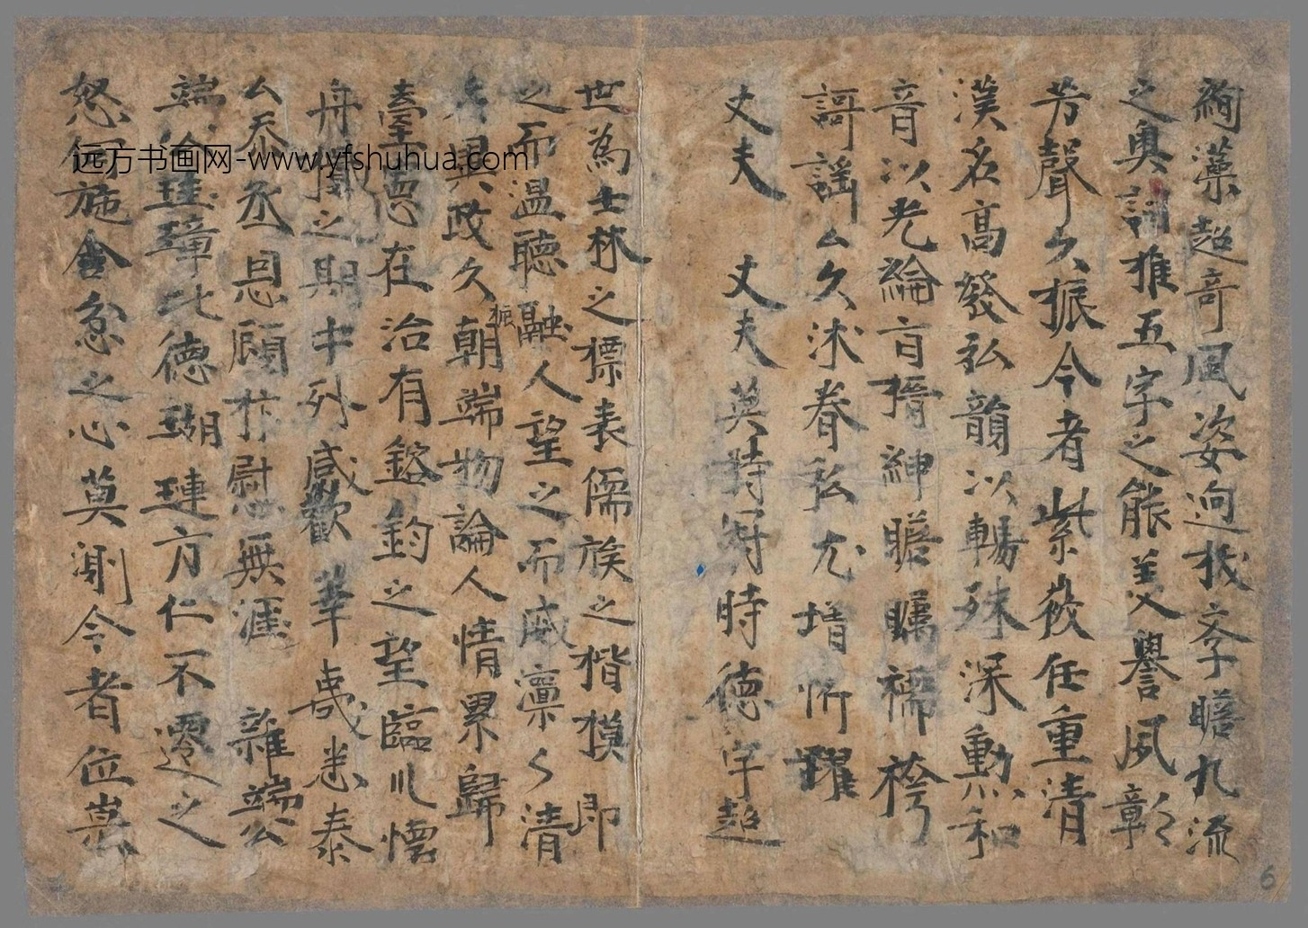 絢藻超奇風姿迥拔李瞻九流
之奧詞推五字之能美譽夙彰
芳聲久振今者紫授任重清
漢名高發弘韻以暢殊深勳和
音以光綸言搢紳瞻矚襦袴
謌謠厶久沐眷私尤增忻躍
丈夫 丈夫英特符時德宇超
世為士林之標表儒族之楷模即
之而溫聽融人望之而威凛々清
具政久朝端物論人情累歸
振
臺惣在治有鎔鈞之望臨川懷
舟聞之期中外感歡羣悉泰
厶忝丞恩顧忭慰無涯 雜端公
端公珪璋比德瑚璉方仁不遷之
怒施舍忿之心莫測今者位
远方书画网-www.yfshuhua.com
6